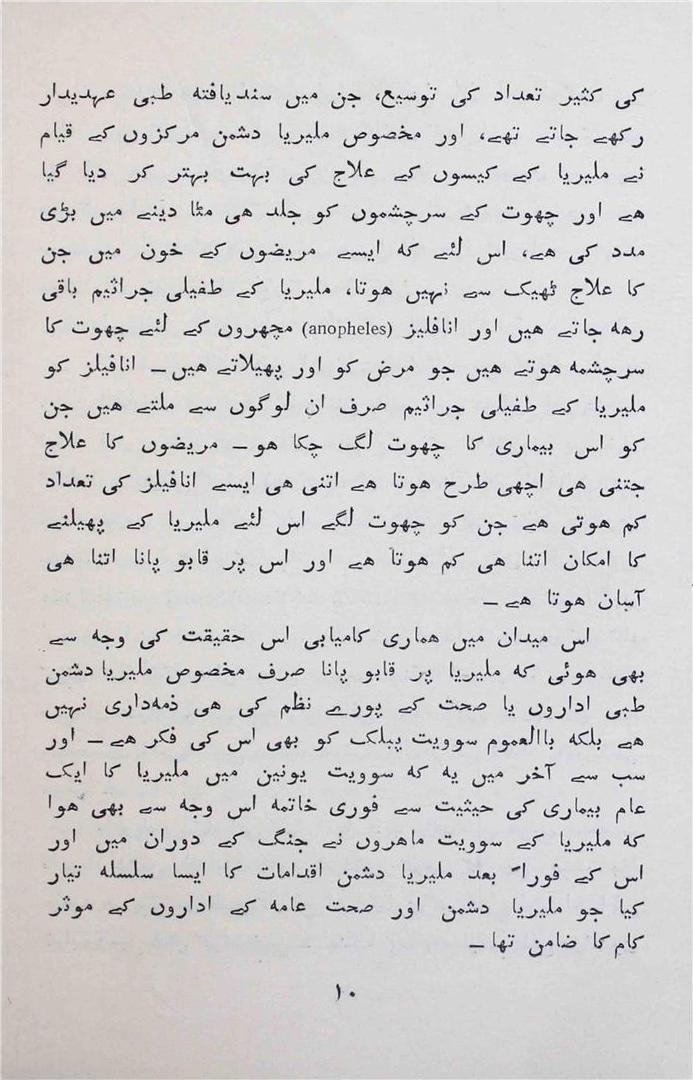 کی کثیر تعداد کی توسیع، جن میں سندیافتہ طبی عہدیدار
رکھے جاتے تھے، اور مخصوص ملیریا دشمن مرکزوں کے قیام
نے ملیریا کے کیسوں کے علاج کی بہت بہتر کر دیا گیا
ہے اور چھوت کے سرچشموں کو جلد ہی مٹا دینے میں بڑی
مدد کی ہے، اس لئے کہ ایسے مریضوں کے خون میں جن
کا علاج ٹھیک سے نہیں ہوتا، ملیریا کے طفیلی جراثیم باقی
رہ جاتے ہیں اور انافلیز (anopheles) مچھروں کے لئے چھوت کا
سرچشمہ ہوتے ہیں جو مرض کو اور پھیلاتے ہیں ـ انافیلز کو
ملیریا کے طفیلی جراثیم صرف ان لوگوں سے ملتے ہیں جن
کو اس بیماری کا چھوت لگ چکا ہو ـ مریضوں کا علاج
جتنی ہی اچھی طرح ہوتا ہے اتنی ہی ایسے انافیلز کی تعداد
کم ہوتی ہے جن کو چھوت لگے اس لئے ملیریا کے پھیلنے
کا امکان اتنا ہی کم ہوتا ہے اور اس پر قابو پانا اتنا ہی
آسان ہوتا ہے ـ
اس میدان میں ہماری کامیابی اس حقیقت کی وجہ سے
بھی ہوئی کہ ملیریا پر قابو پانا صرف مخصوص ملیریا دشمن
طبی اداروں یا صحت کے پورے نظم کی ہی ذمہداری نہیں
ہے بلکہ باالعموم سوویت پبلک کو بھی اس کی فکر ہے ـ اور
سب سے آخر میں یہ کہ سوویت یونین میں ملیریا کا ایک
عام بیماری کی حیثیت سے فوری خاتمہ اس وجہ سے بھی ہوا
کہ ملیریا کے سوویت ماہروں نے جنگ کے دوران میں اور
اس کے فوراً بعد ملیریا دشمن اقدامات کا ایسا سلسلہ تیار
کیا جو ملیریا دشمن اور صحت عامہ کے اداروں کے موثر
کام کا ضامن تھا ـ
۱۰